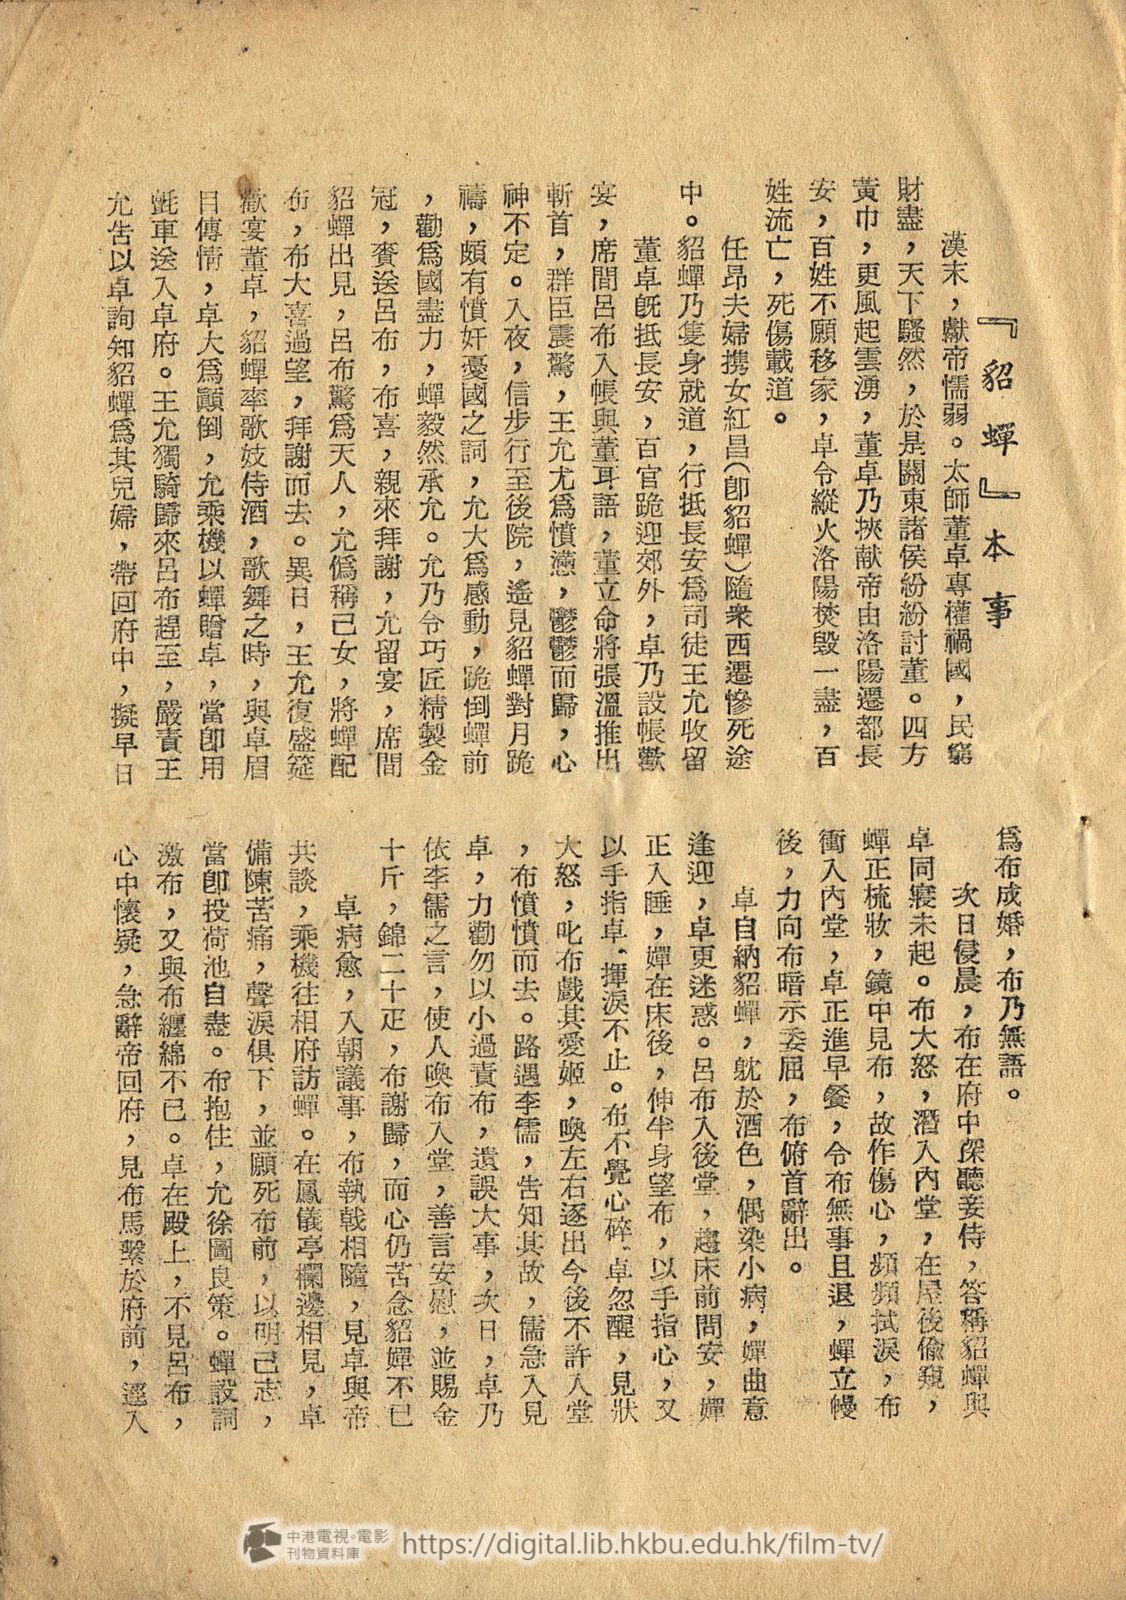 『貂蟬』本事
漢末，獻帝懦弱。太師董卓專權禍國，民窮
財盡，天下騷然，於是關東諸侯紛紛討董。四方
黃巾，更風起雲湧，董卓乃挾献帝由洛陽遷都長
安，百姓不願移家，卓令縱火洛陽焚毀一盡，百
姓流亡，死傷載道。
任昂夫婦携女紅昌（卽貂蟬）隨衆西遷慘死途
中。貂蟬乃隻身就道，行抵長安爲司徒王允收留
董卓旣抵長安，百官跪迎郊外，卓乃設帳歡
宴，席間呂布入帳與董耳語，董立命將張溫推出
斬首，群臣震驚，王允尤爲憤懣，鬱鬱而歸，心
神不定。入夜，信步行至後院，遙見貂蟬對月跪
禱，頗有憤奸憂國之詞，允大爲感動，跪倒蟬前
，勸爲國盡力，蟬毅然承允。允乃令巧匠精製金
冠，賚送呂布，布喜，親來拜謝，允留宴，席間
貂蟬出見，呂布驚爲天人，允僞稱己女，將蟬配
布，布大喜過望，拜謝而去。異日，王允復盛筵
歡宴董卓，貂蟬率歌妓侍酒，歌舞之時，與卓眉
目傳情，卓大爲顚倒，允乘機以蟬贈卓，當卽用
氈車送入卓府。王允獨騎歸來呂布趕至，嚴責王
允告以卓詢知貂蟬爲其兒婦，帶回府中，擬早日
爲布成婚，布乃無語。
次日侵晨，布在府中探聽妾侍，答稱貂蟬與
卓同寢未起。布大怒，潛入內堂，在屋後偷窺，
蟬正梳妝，鏡中見布，故作傷心，頻頻拭淚，布
衝入內堂，卓正進早餐，令布無事且退，蟬立幔
後，力向布暗示委屈，布俯首辭出。
卓自納貂蟬，躭於酒色，偶染小病，嬋曲意
逢迎，卓更迷惑。呂布入後堂，趨床前問安，嬋
正入睡，嬋在床後，伸半身望布，以手指心，又
以手指卓，揮淚不止。布不覺心碎，卓忽醒，見狀
大怒，叱布戲其愛姬，喚左右逐出今後不許入堂
，布憤憤而去。路遇李儒，告知其故，儒急入見
卓，力勸勿以小過責布，遺誤大事，次日，卓乃
依李儒之言，使人喚布入堂，善言安慰，並賜金
十斤，錦二十疋，布謝歸，而心仍苦念貂嬋不已
卓病愈，入朝議事，布執戟相隨，見卓與帝
共談，乘機往相府訪蟬。在鳳儀亭欄邊相見，卓
備陳苦痛，聲淚俱下，並願死布前，以明己志，
當卽投荷池自盡。布抱住，允徐圖良策。蟬設詞
激布，又與布纏綿不已。卓在殿上，不見呂布，
心中懷疑，急辭帝回府，見布馬繫於府前，逕入
中港電視·電影
刊物資料庫
https://digital.lib.hkbu.edu.hk/film-tv/